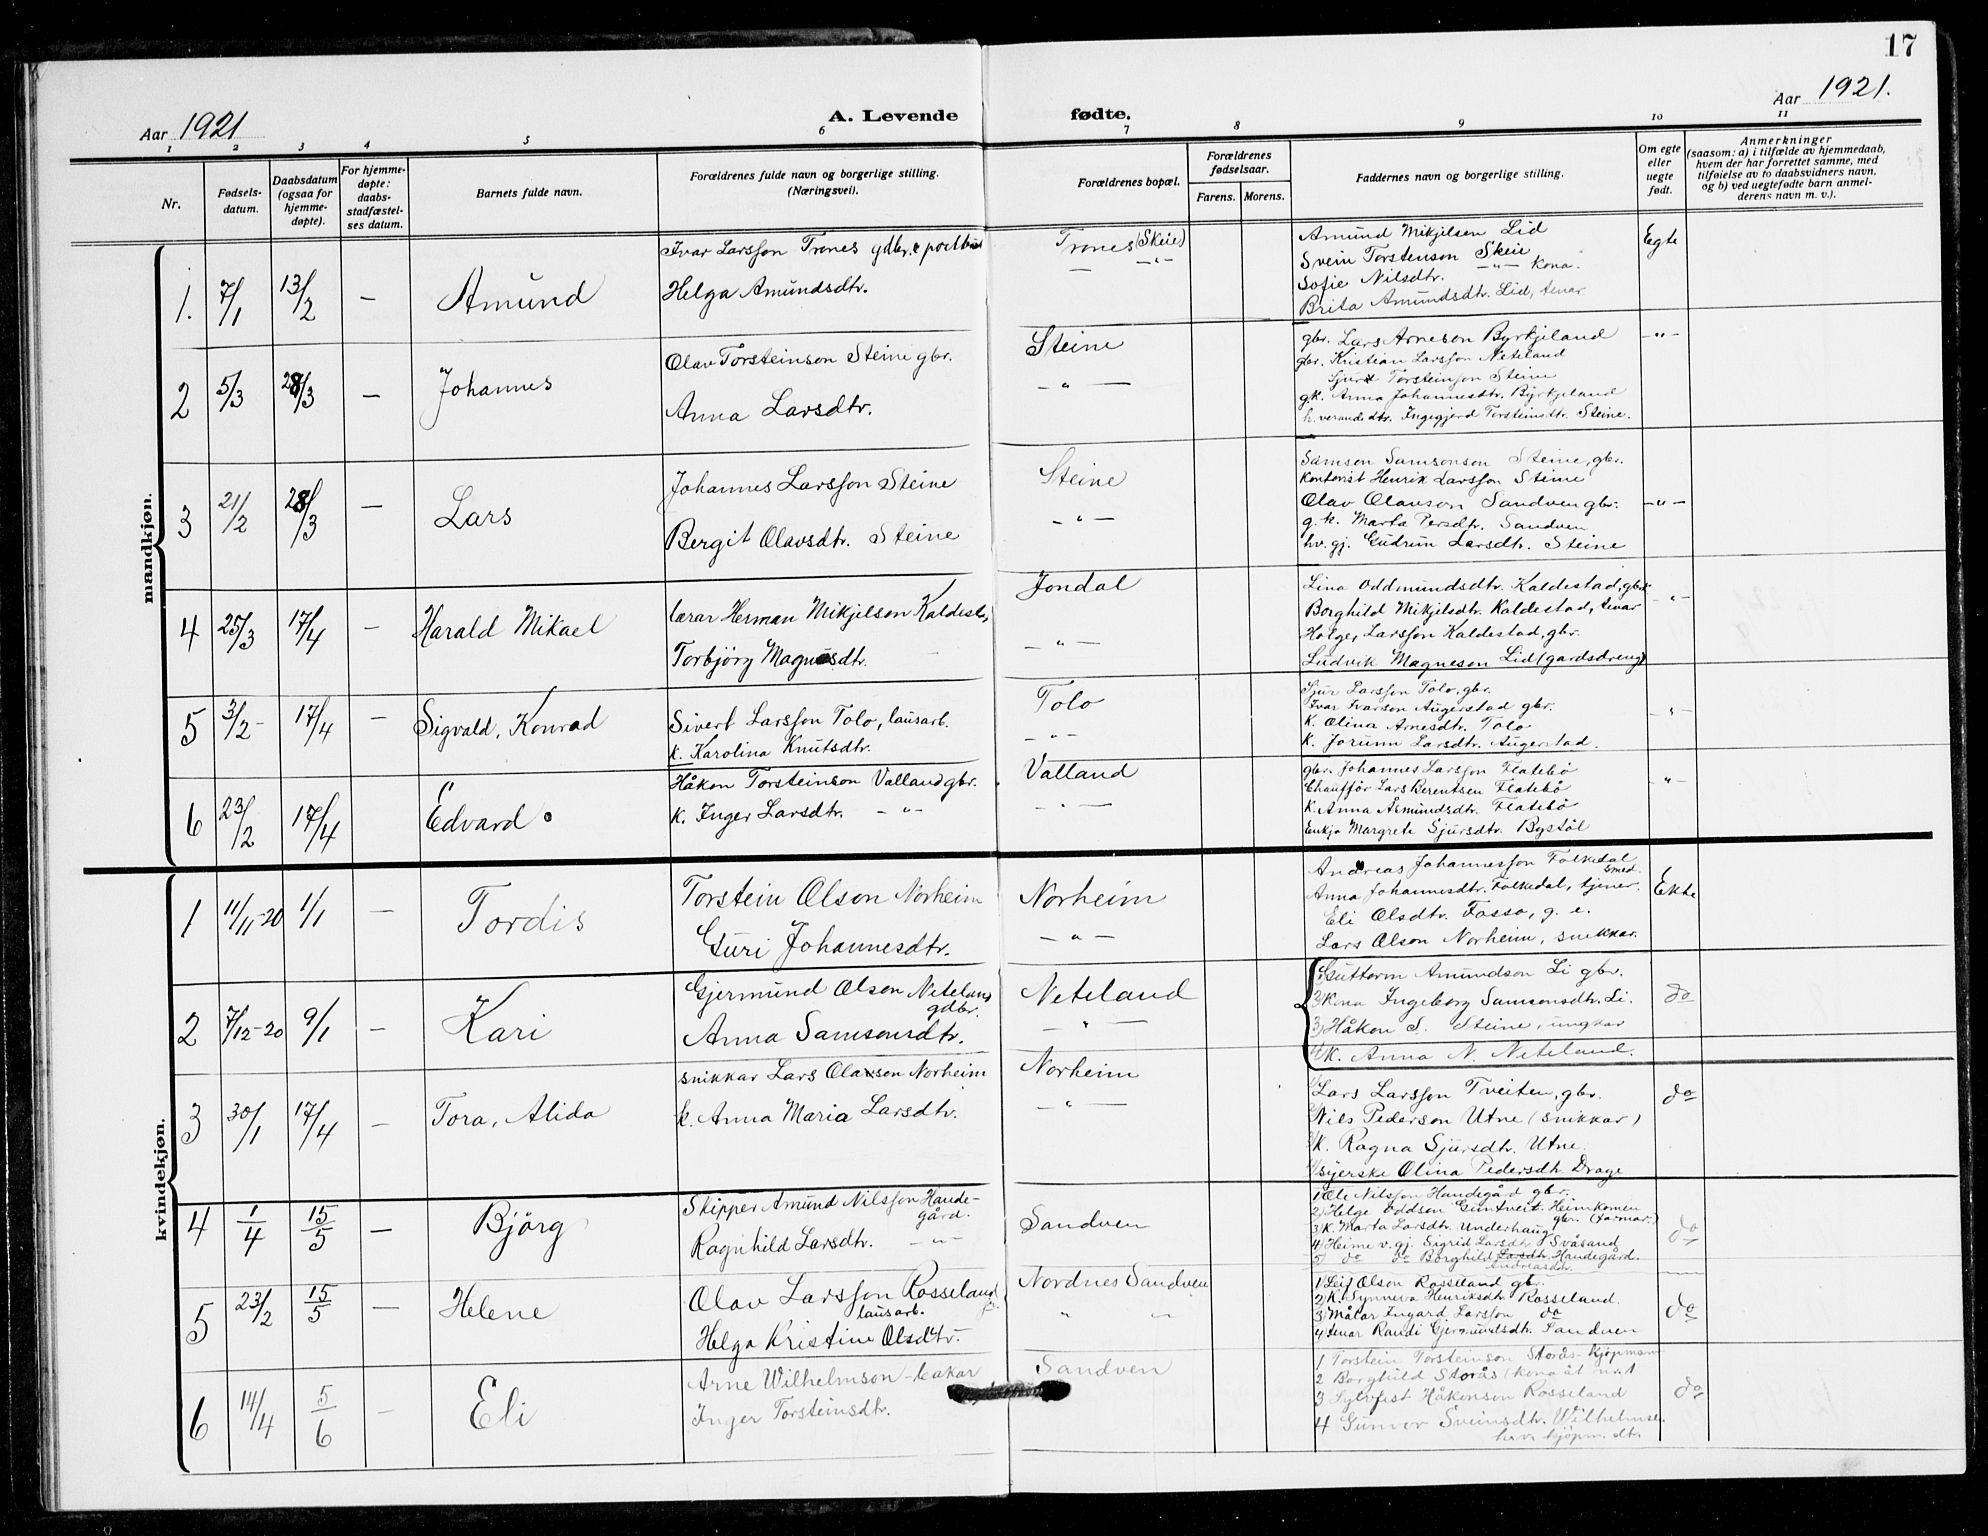 17
Aar 1921
A. Levende
fødte.
Aar 1921.
1 2 3 4 5 6 7 8 9 10 11
Nr.
Fødsels-
datum.
Daabsdatum
(ogsaa for
hjemme-
døpte).
For hjemme-
døpte:
daabs-
stadfæstel-
ses datum.
Barnets fulde navn.
Forældrenes fulde navn og borgerlige stilling.
(Næringsvei).
Forældrenes bopæl.
Forældrenes
fødselsaar.
Farens. Morens.
Faddernes navn og borgerlige stilling.
Om egte
eller
uegte
født.
Anmerkninger
(saasom: a) i tilfælde av hjemmedaab,
hvem der har forrettet samme, med
tilføielse av to daabsvidners navn,
og b) ved uegtefødte barn anmel-
derens navn m. v.).
mandkjøn.
1. 7/1 13/2 — Amund
Ivar Larsson Trones gdbr. & postbud
Helga Amundsdtr.
Trones (Skeie)
— -"-
Amund Mikjelsen Lid
Svein Torstenson Skeie
Sofie Nilsdtr. -"- Kona.
Brita Amundsdtr. Lid, tenar
Egte
2 5/3 28/3 — Johannes
Olav Torsteinson Steine gbr.
Anna Larsdtr.
Steine
-"-
gbr. Lars Arneson Byrkjeland
gbr. Kristian Larsson Neteland
Sjurd Torsteinson Steine
g.k. Anna Johannesdtr. Byrkjeland
h. verande dtr. Ingegjerd Torsteinsdtr. Steine.
-"-
3 21/2 28/3 — Lars
Johannes Larsson Steine
Bergit Olavsdtr. Steine
Steine
-"-
Samson Samsonson Steine, gbr.
Kontorist Henrik Larsson Steine
Olav Olavson Sandven gbr.
g.k. Marta Persdtr. Sandven
hv. gj. Gudrun Larsdtr. Steine
-"-
4 25/3 17/4 — Harald Mikael
lærar Herman Mikjelson Kaldest.,
Torbjörg Magnusdtr.
Jondal
-"-
Lina Oddmundsdtr. Kaldestad, gbr.
Borghild Mikjelsdtr. Kaldestad, tenar
Holger Larsson Kaldestad, gbr.
Ludvik Magneson Lid (gardsdreng)
-"-
5 3/2 17/4 — Sigvald, Konrad
Sivert Larsson Tolo, lausarb.
k. Karolina Knutsdtr.
Tolo
-"-
Sjur Larsson Tolo, gbr.
Ivar Ivarson Augerstad gbr.
K. Olina Arnesdtr. Tolo
K. Jorunn Larsdtr. Augerstad.
-"-
6 23/2 17/4 Edvard
Håkon Torsteinson Valland gbr.
K. Inger Larsdtr. -"-
Valland
-"-
gbr. Johannes Larsson Flatebø
Chauffør Lars Berentsen Flatebø
K. Anna Åsmundsdtr. Flatebø
Enkja Margrete Sjursdtr. Bystøl
-"-
kvindekjøn.
1 11/11-20 1/1 — Tordis
Torstein Olson Norheim
Guri Johannesdtr.
Norheim
-"-
Andreas Johannesson Folkedal
smed.
Anna Johannesdtr. Folkedal, tjener.
Eli Olsdtr. Fosso, g. e.
Lars Olson Norheim, snikkar.
Ekte
2 7/12-20 9/1 — Kari
Gjermund Olson Neteland
gdbr.
Anna Samsonsdtr.
Neteland
-"-
Guttorm Amundson Li gbr.
2) Kona Ingeborg Samsonsdtr. Li.
3) Håkon S. Steine, ungkar
4) K. Anna N. Neteland.
do
3 30/1 17/4 — Tora, Alida
snikkar Lars Olavson Norheim
k. Anna Maria Larsdtr.
Norheim
-"-
Lars Larsson Tveiten, gbr.
Nils Pederson Utne (snikkar)
K. Ragna Sjursdtr. Utne.
syerske Olina Pedersdtr. Drage
do
4 1/4 15/5 — Björg
Skipper Amund Nilsson Hande-
gård.
Ragnhild Larsdtr. -"-
Sandven
1 Ole Nilsson Handegård gbr.
2) Helge Oddson Guntveit. Heimkomen
gbr. (farmar.)
3 K. Marta Larsdtr. Underhaug
4) Heime v. gj. Sigrid Larsdtr. Svåsand
5 do do Borghild Larsdtr. Handegård.
Andreasdtr.
do
5 23/2 15/5 — Helene
Olav Larsson Rosseland
lausarb.
Helga Kristine Olsdtr.
Nordnes Sandven
" "
1 Leif Olson Rosseland gbr.
2) K. Synneva Henriksdtr. Rosseland.
3) Målar Ingvard Larsson do
4 tenar Randi Gjermundsdtr. Sandven
do
6 14/4 5/6 — Eli
Arne Wilhelmson - bakar
Inger Torsteinsdtr.
Sandven
1 Torstein Torsteinson Storås- Kjøpmann
2 Borghild Storås (kona åt nr. 1
3 Sylvfest Håkonson Rosseland
4 Gunvor Sveinsdtr. Wilhelmsen.
kjöpm. dtr.
do